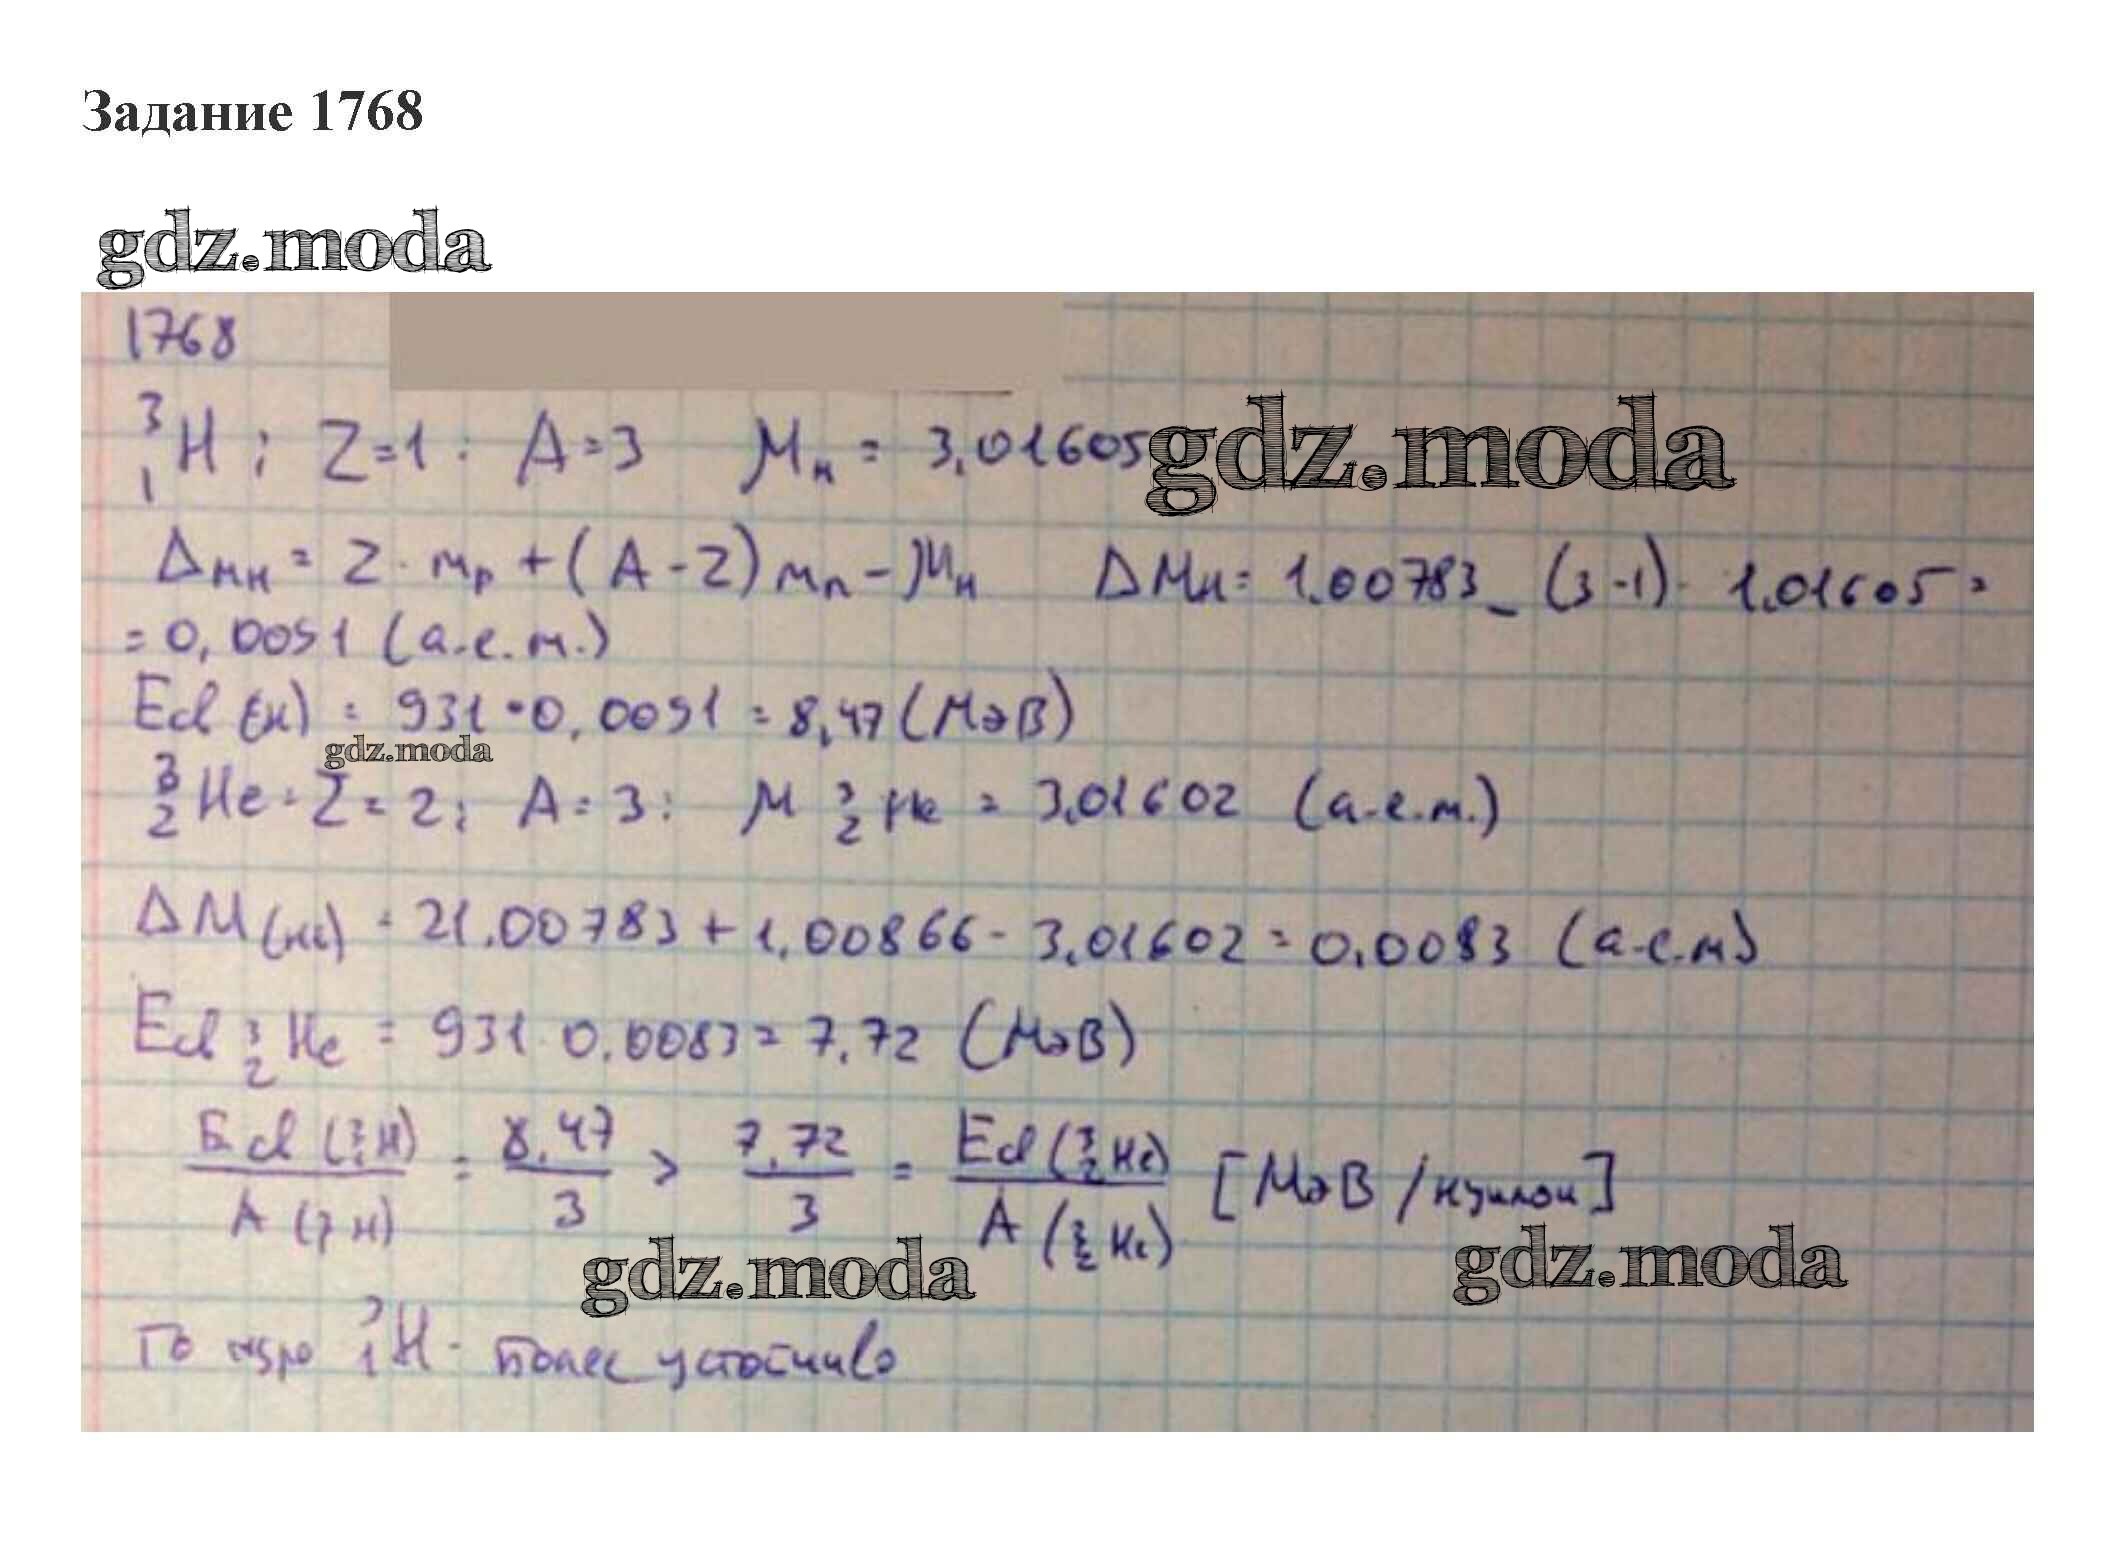 Задание 1768
gdz.moda
1768
³₁H ; Z=1 ; A=3 Mн = 3,01605 gdz.moda
Δмн = Z · mp + (A-Z) mn - Mн ΔMн = 1.00783 - (3-1) · 1.01605 =
= 0,0091 (а.е.м.)
Ed (н) = 931 · 0,0091 = 8,47 (МэВ)
gdz.moda
³₂He - Z = 2; A = 3; M ³₂He = 3,01602 (а.е.м.)
ΔM(не) = 21.00783 + 1,00866 - 3,01602 = 0,0083 (а.е.м)
Ed ³₂He = 931 · 0,0083 = 7,72 (МэВ)
Ed (³₁H) / A (³₁H) = 8,47 / 3 > 7,72 / 3 = Ed (³₂He) / A (³₂He) [МэВ/нуклон]
gdz.moda gdz.moda
То ядро ³₁H - более устойчиво